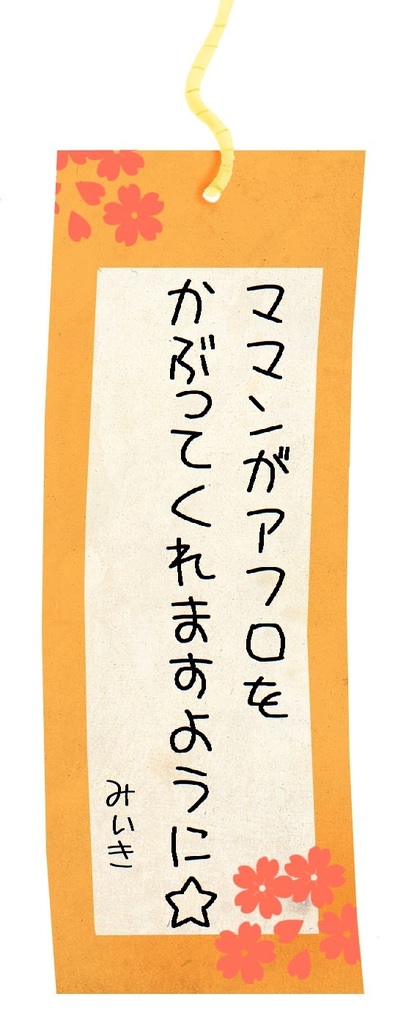 ママンがアフロを
かぶってくれますように☆
みいき